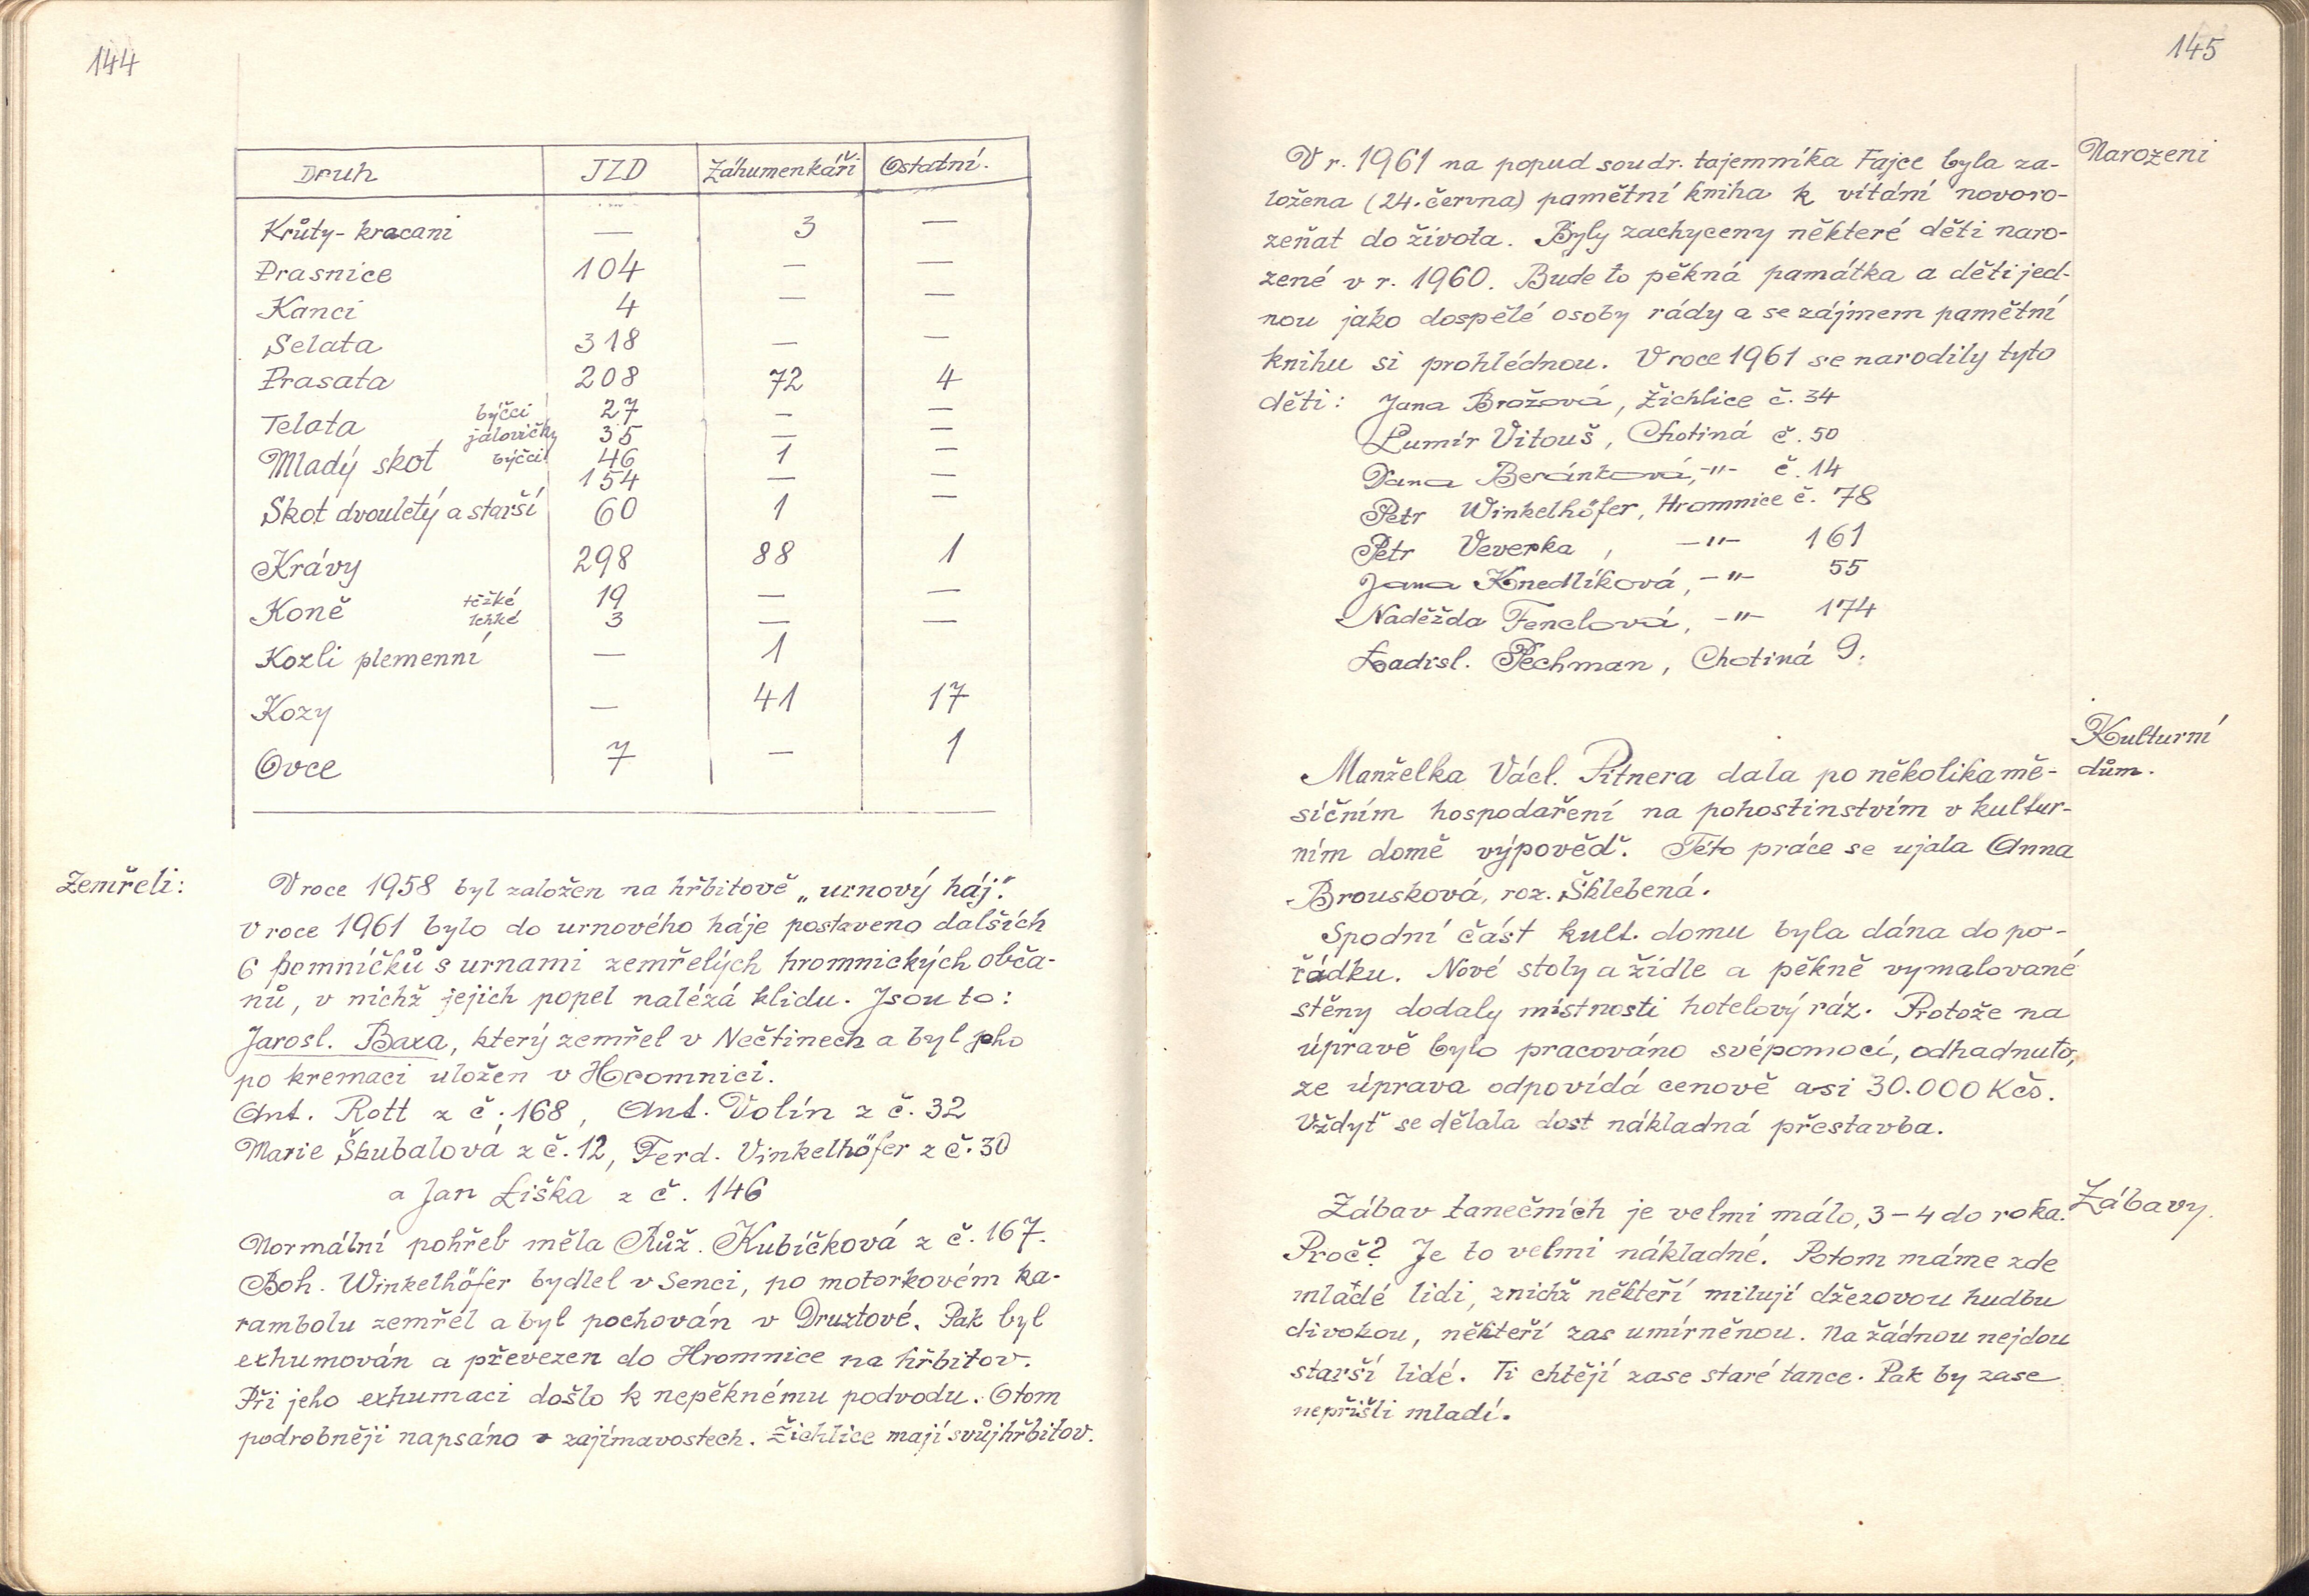 144
Druh JZD Záhumenkáři Ostatní.
Krůty - kracani — 3 —
Prasnice 104 — —
Kanci 4 — —
Selata 318 — —
Prasata 208 72 4
Telata býčci 27 — —
jalovičky 35 — —
Mladý skot býčci 46 1 —
154 — —
Skot dvouletý a starší 60 1 —
Krávy 298 88 1
Koně těžké 19 — —
lehké 3 — —
Kozli plemenní — 1
Kozy — 41 17
Ovce 7 — 1
Zemřeli:
V roce 1958 byl založen na hřbitově „urnový háj“.
V roce 1961 bylo do urnového háje postaveno dalších
6 pomníčků s urnami zemřelých hromnických obča-
nů, v nichž jejich popel nalézá klidu. Jsou to:
Jarosl. Baxa, který zemřel v Nečtinech a byl jeho
po kremaci uložen v Hromnici.
Ant. Rott z č. 168, Ant. Volín z č. 32
Marie Škubalová z č. 12, Ferd. Vinkelhöfer z č. 30
a Jan Liška z č. 146
Normální pohřeb měla Růž. Kubíčková z č. 167.
Boh. Winkelhöfer bydlel v Senci, po motorkovém ka-
rambolu zemřel a byl pochován v Druztové. Pak byl
exhumován a převezen do Hromnice na hřbitov.
Při jeho exhumaci došlo k nepěknému podvodu. O tom
podrobněji napsáno v zajímavostech. Žichlice mají svůj hřbitov.
145
Narozeni
V r. 1961 na popud soudr. tajemníka Fajce byla za-
ložena (24. června) pamětní kniha k vítání novoro-
zeňat do života. Byly zachyceny některé děti naro-
zené v r. 1960. Bude to pěkná památka a děti jed-
nou jako dospělé osoby rády a se zájmem pamětní
knihu si prohlédnou. V roce 1961 se narodily tyto
děti: Jana Brožová, Žichlice č. 34
Lumír Vitouš, Chotiná č. 50
Dana Beránková, -"- č. 14
Petr Winkelhöfer, Hromnice č. 78
Petr Veverka, -"- 161
Jana Knedlíková, -"- 55
Naděžda Fenclová, -"- 174
Ladisl. Pechman, Chotiná 9.
Kulturní
dům.
Manželka Václ. Pitnera dala po několikamě-
síčním hospodaření na pohostinstvím v kultur-
ním domě výpověď. Této práce se ujala Anna
Brousková, roz. Šklebená.
Spodní část kult. domu byla dána do po-
řádku. Nové stoly a židle a pěkně vymalované
stěny dodaly místnosti hotelový ráz. Protože na
úpravě bylo pracováno svépomocí, odhadnuto,
ze úprava odpovídá cenově asi 30.000 Kčs.
Vždyť se dělala dost nákladná přestavba.
Zábavy.
Zábav tanečních je velmi málo, 3-4 do roka.
Proč? Je to velmi nákladné. Potom máme zde
mladé lidi, z nichž někteří milují džezovou hudbu
divokou, někteří zas umírněnou. Na žádnou nejdou
starší lidé. Ti chtějí zase staré tance. Pak by zase
nepřišli mladí.